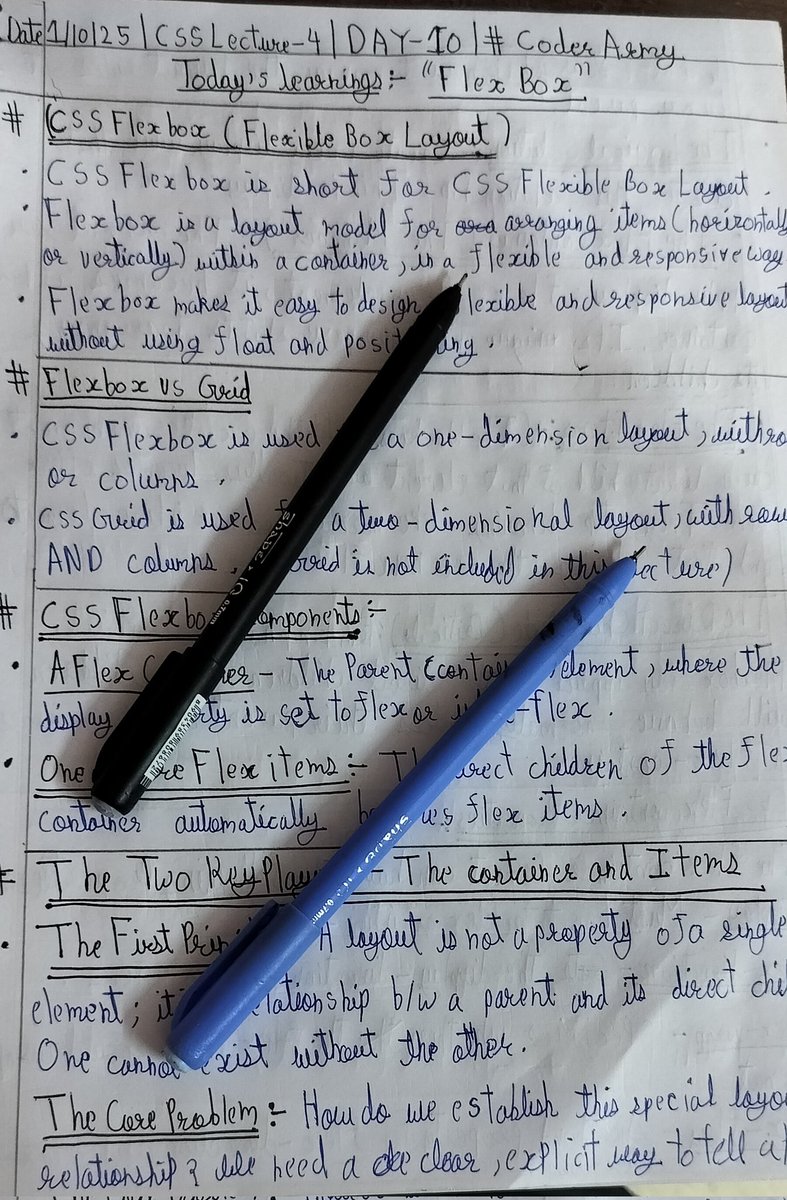 Date 1/10/25 | CSS Lecture-4 | DAY-10 | # Coder Army
Today's learnings:- "Flex Box"
# CSS Flexbox (Flexible Box Layout)
· CSS Flexbox is short for CSS Flexible Box Layout.
· Flexbox is a layout model for arranging items (horizontally
or vertically) within a container, in a flexible and responsive way
· Flexbox makes it easy to design lexible and responsive layout
without using float and posit ing.
# Flexbox vs Grid
· CSS Flexbox is used a one-dimension layout, with ro
or columns.
· CSS Grid is used a two-dimensional layout, with row
AND columns. rid is not included in this lecture)
# CSS Flexbo omponents:-
· A Flex C er - The Parent (contai element, where the
display ty is set to flex or i -flex.
· One re Flex items:- Th irect children of the fle
container automatically b es flex items.
# The Two Key Play - The container and Items
· The First Prin A layout is not a property of a single
element; it lationship b/w a parent and its direct chi
One cannot exist without the other.
The Core Problem:- How do we establish this special layo
relationship? We need a clear, explicit way to tell a